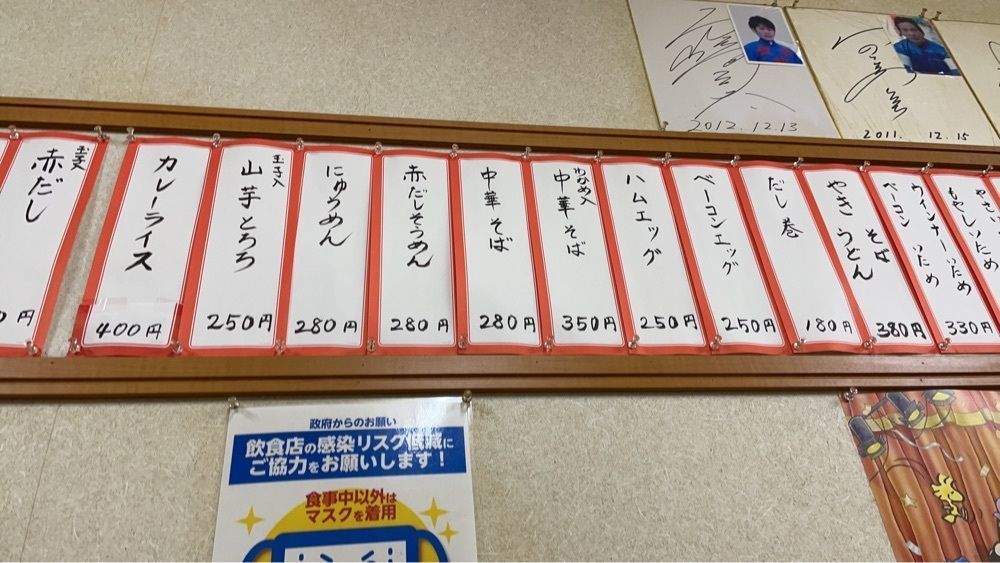 2012.12.13
2011. 12. 15
玉子入
赤だし
円
カレーライス
400円
玉子入
山芋とろろ
250円
にゅうめん
280円
赤だしそうめん
280円
中華そば
280円
わかめ入
中華そば
350円
ハムエッグ
250円
ベーコンエッグ
250円
だし巻
180円
やき そば
うどん
380円
ウインナーいため
ベーコン いため
330円
やさい
もやしいため
政府からのお願い
飲食店の感染リスク低減に
ご協力をお願いします!
食事中以外は
マスクを着用